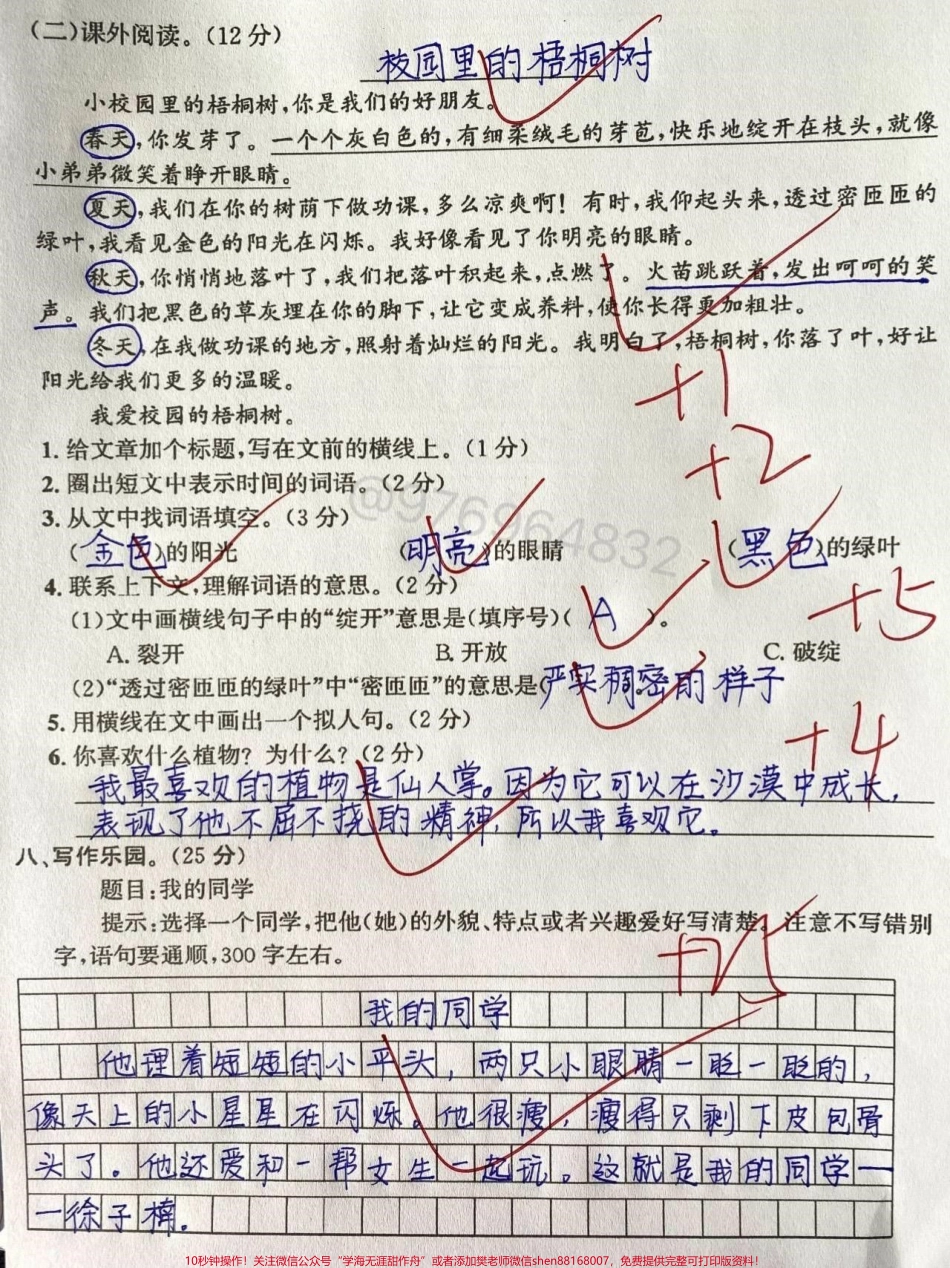 (二)课外阅读。(12分)
校园里的梧桐树
小校园里的梧桐树,你是我们的好朋友。
春天,你发芽了。一个个灰白色的,有细柔绒毛的芽苞,快乐地绽开在枝头,就像
小弟弟微笑着睁开眼睛。
夏天,我们在你的树荫下做功课,多么凉爽啊!有时,我仰起头来,透过密匝匝的
绿叶,我看见金色的阳光在闪烁。我好像看见了你明亮的眼睛。
秋天,你悄悄地落叶了,我们把落叶积起来,点燃了。火苗跳跃着,发出呵呵的笑
声。我们把黑色的草灰埋在你的脚下,让它变成养料,使你长得更加粗壮。
冬天,在我做功课的地方,照射着灿烂的阳光。我明白了,梧桐树,你落了叶,好让
阳光给我们更多的温暖。
我爱校园的梧桐树。
+1
1.给文章加个标题,写在文前的横线上。(1分)
+2
2.圈出短文中表示时间的词语。(2分)
3.从文中找词语填空。(3分)
(金色)的阳光 (明亮)的眼睛 (黑色)的绿叶
@976964832
4.联系上下文,理解词语的意思。(2分)
+5
(1)文中画横线句子中的“绽开”意思是(填序号)( A )。
A.裂开 B.开放 C.破绽
(2)“透过密匝匝的绿叶”中“密匝匝”的意思是(严实稠密的样子
5.用横线在文中画出一个拟人句。(2分)
+4
6.你喜欢什么植物?为什么?(2分)
我最喜欢的植物是仙人掌。因为它可以在沙漠中成长,
表现了他不屈不挠的精神,所以我喜欢它。
八、写作乐园。(25分)
题目:我的同学
提示:选择一个同学,把他(她)的外貌、特点或者兴趣爱好写清楚。注意不写错别
字,语句要通顺,300字左右。
+25
我的同学
他理着短短的小平头,两只小眼睛一眨一眨的,
像天上的小星星在闪烁。他很瘦,瘦得只剩下皮包骨
头了。他还爱和一帮女生一起玩。这就是我的同学一
一徐子楠。
10秒钟操作!关注微信公众号“学海无涯甜作舟”或者添加樊老师微信shen88168007,免费提供完整可打印版资料!